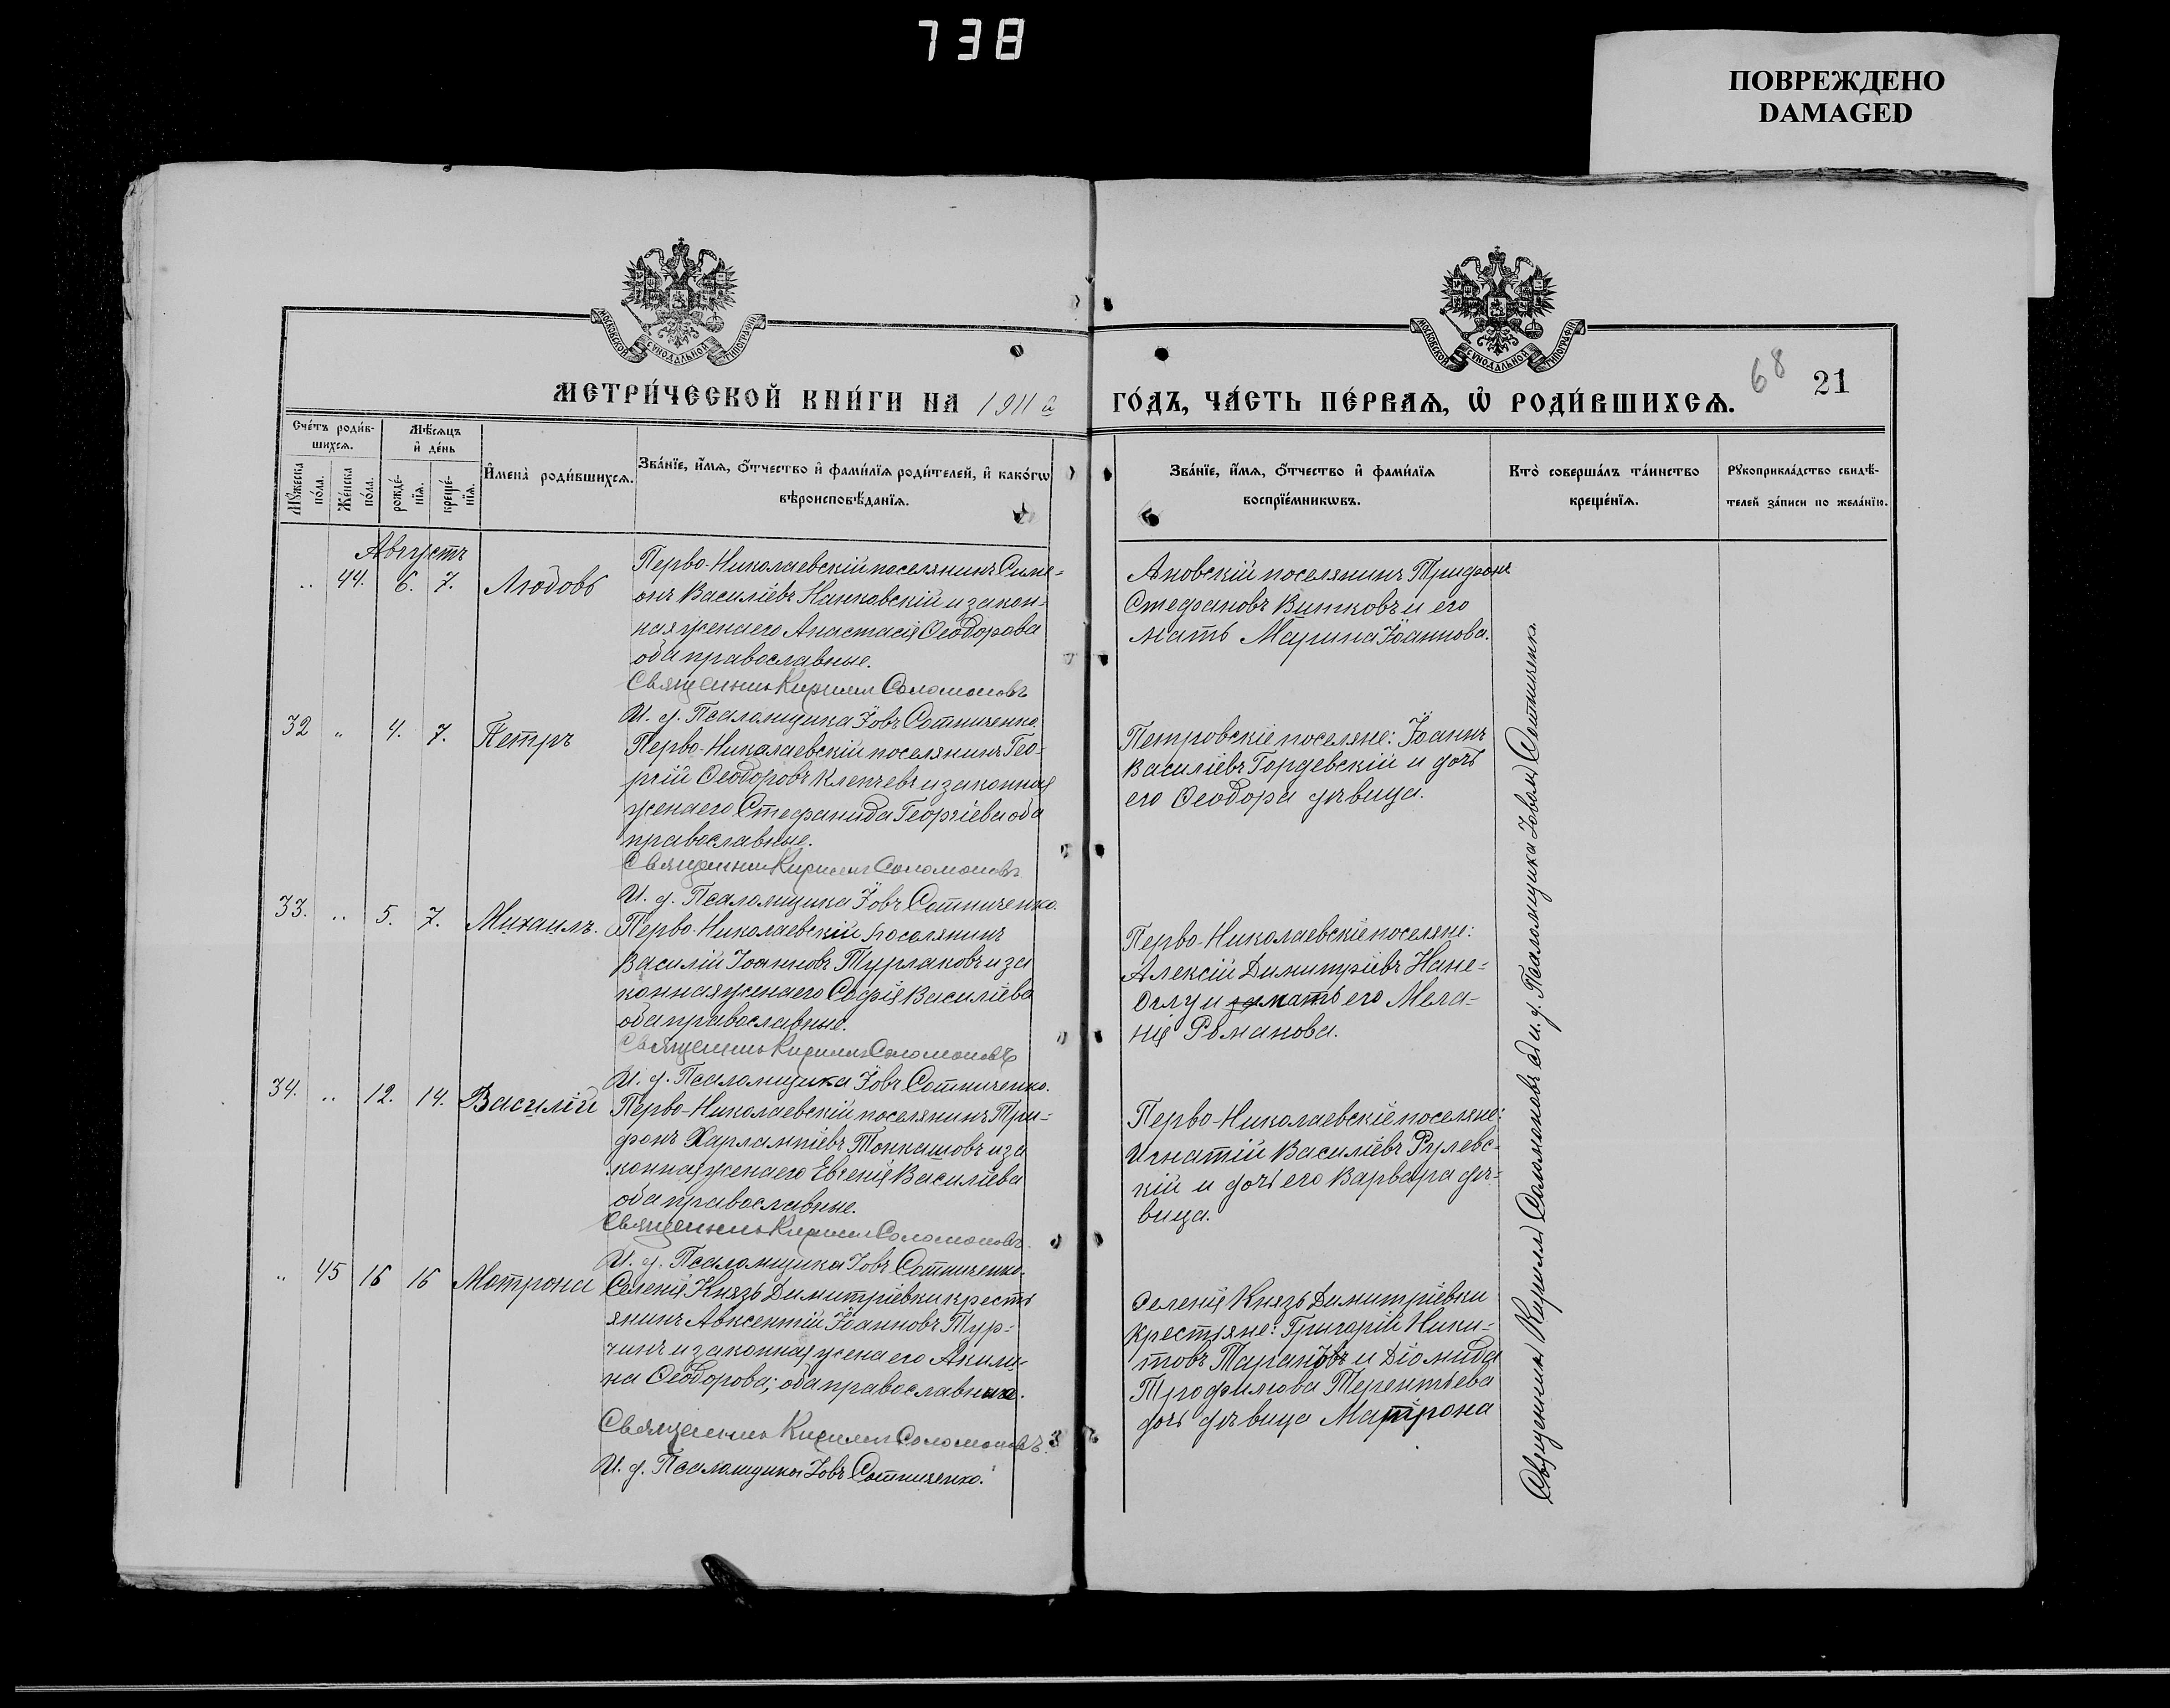 738
ПОВРЕЖДЕНО
DAMAGED
МОСКОВСКОЙ СѴНОДАЛЬНОЙ ТИПОГРАФІИ
МОСКОВСКОЙ СѴНОДАЛЬНОЙ ТИПОГРАФІИ
68
21
МЕТРИ́ЧЕСКОЙ КНИ́ГИ НА 1911й
ГО́ДЪ, ЧА́СТЬ ПЕ́РВАЯ, Ѡ РОДИ́ВШИХСЯ.
Сче́тъ роди́в-
шихся.
Мѣ́сяцъ
и де́нь
Мꙋ́жеска
по́ла.
Же́нска
по́ла.
рожде́-
нїя.
креще́-
нїя.
И҆мена̀ роди́вшихся.
Зва́нїе, и҆́мя, ѻ҆́тчество и҆ фами́лїя роди́телей, и҆ како́гѡ
вѣроисповѣ́данїя.
Зва́нїе, и҆́мя, ѻ҆́тчество и҆ фами́лїя
воспрїе́мникѡвъ.
Кто̀ соверша́лъ та́инство
креще́нїя.
Рꙋкоприкла́дство свидѣ́-
телей за́писи по жела́нїю.
Августъ
.. 44. 6. 7. Любовь
Перво-Николаевскій поселянинъ Симе-
онъ Василіевъ Нанковскій и закон-
ная жена его Анастасія Ѳеодорова
оба православные.
Священникъ Кириллъ Соломоновъ
И. д. Псаломщика Іовъ Сотниченко.
Ановскій поселянинъ Трифонъ
Стефановъ Витковъ и его
мать Марина Іоаннова.
32 „ 4. 7. Петръ
Перво-Николаевскій поселянинъ Гео-
ргій Ѳеодоровъ Кленчевъ и законная
жена его Стефанида Георгіева оба
православные.
Священникъ Кириллъ Соломоновъ
И. д. Псаломщика Іовъ Сотниченко.
Петровскіе поселяне: Іоаннъ
Василіевъ Гордевскій и дочь
его Ѳеодора дѣвица.
33. .. 5. 7. Михаилъ.
Перво-Николаевскій поселянинъ
Василій Іоанновъ Турлаковъ и за
конная жена его Софія Василіева
оба православные.
Священникъ Кириллъ Соломоновъ
И. д. Псаломщика Іовъ Сотниченко.
Перво-Николаевскіе поселяне:
Алексій Димитріевъ Нане-
оглу и мать его Мела-
нія Романова.
34. .. 12. 14. Василій
Перво-Николаевскій поселянинъ Три-
фонъ Харлампіевъ Топкашовъ и за
конная жена его Евгенія Василіева
оба православные.
Священникъ Кириллъ Соломоновъ
И. д. Псаломщика Іовъ Сотниченко.
Перво-Николаевскіе поселяне:
Игнатій Василіевъ Рулевс-
кій и дочь его Варвара дѣ-
вица.
„ 45 16 16 Матрона
Селенія Князь Димитріевки кресть
янинъ Авксентій Іоанновъ Тур-
чинъ и законная жена его Акили-
на Ѳеодорова; оба православные.
Священникъ Кириллъ Соломоновъ.
И. д. Псаломщика Іовъ Сотниченко.
Селенія Князь Димитріевки
крестьяне: Григорій Ники-
товъ Тарановъ и Діомида
Трофимова Терентьева
дочь дѣвица Матрона
Священникъ Кириллъ Соломоновъ съ и. д. Псаломщика Іовомъ Сотниченко.